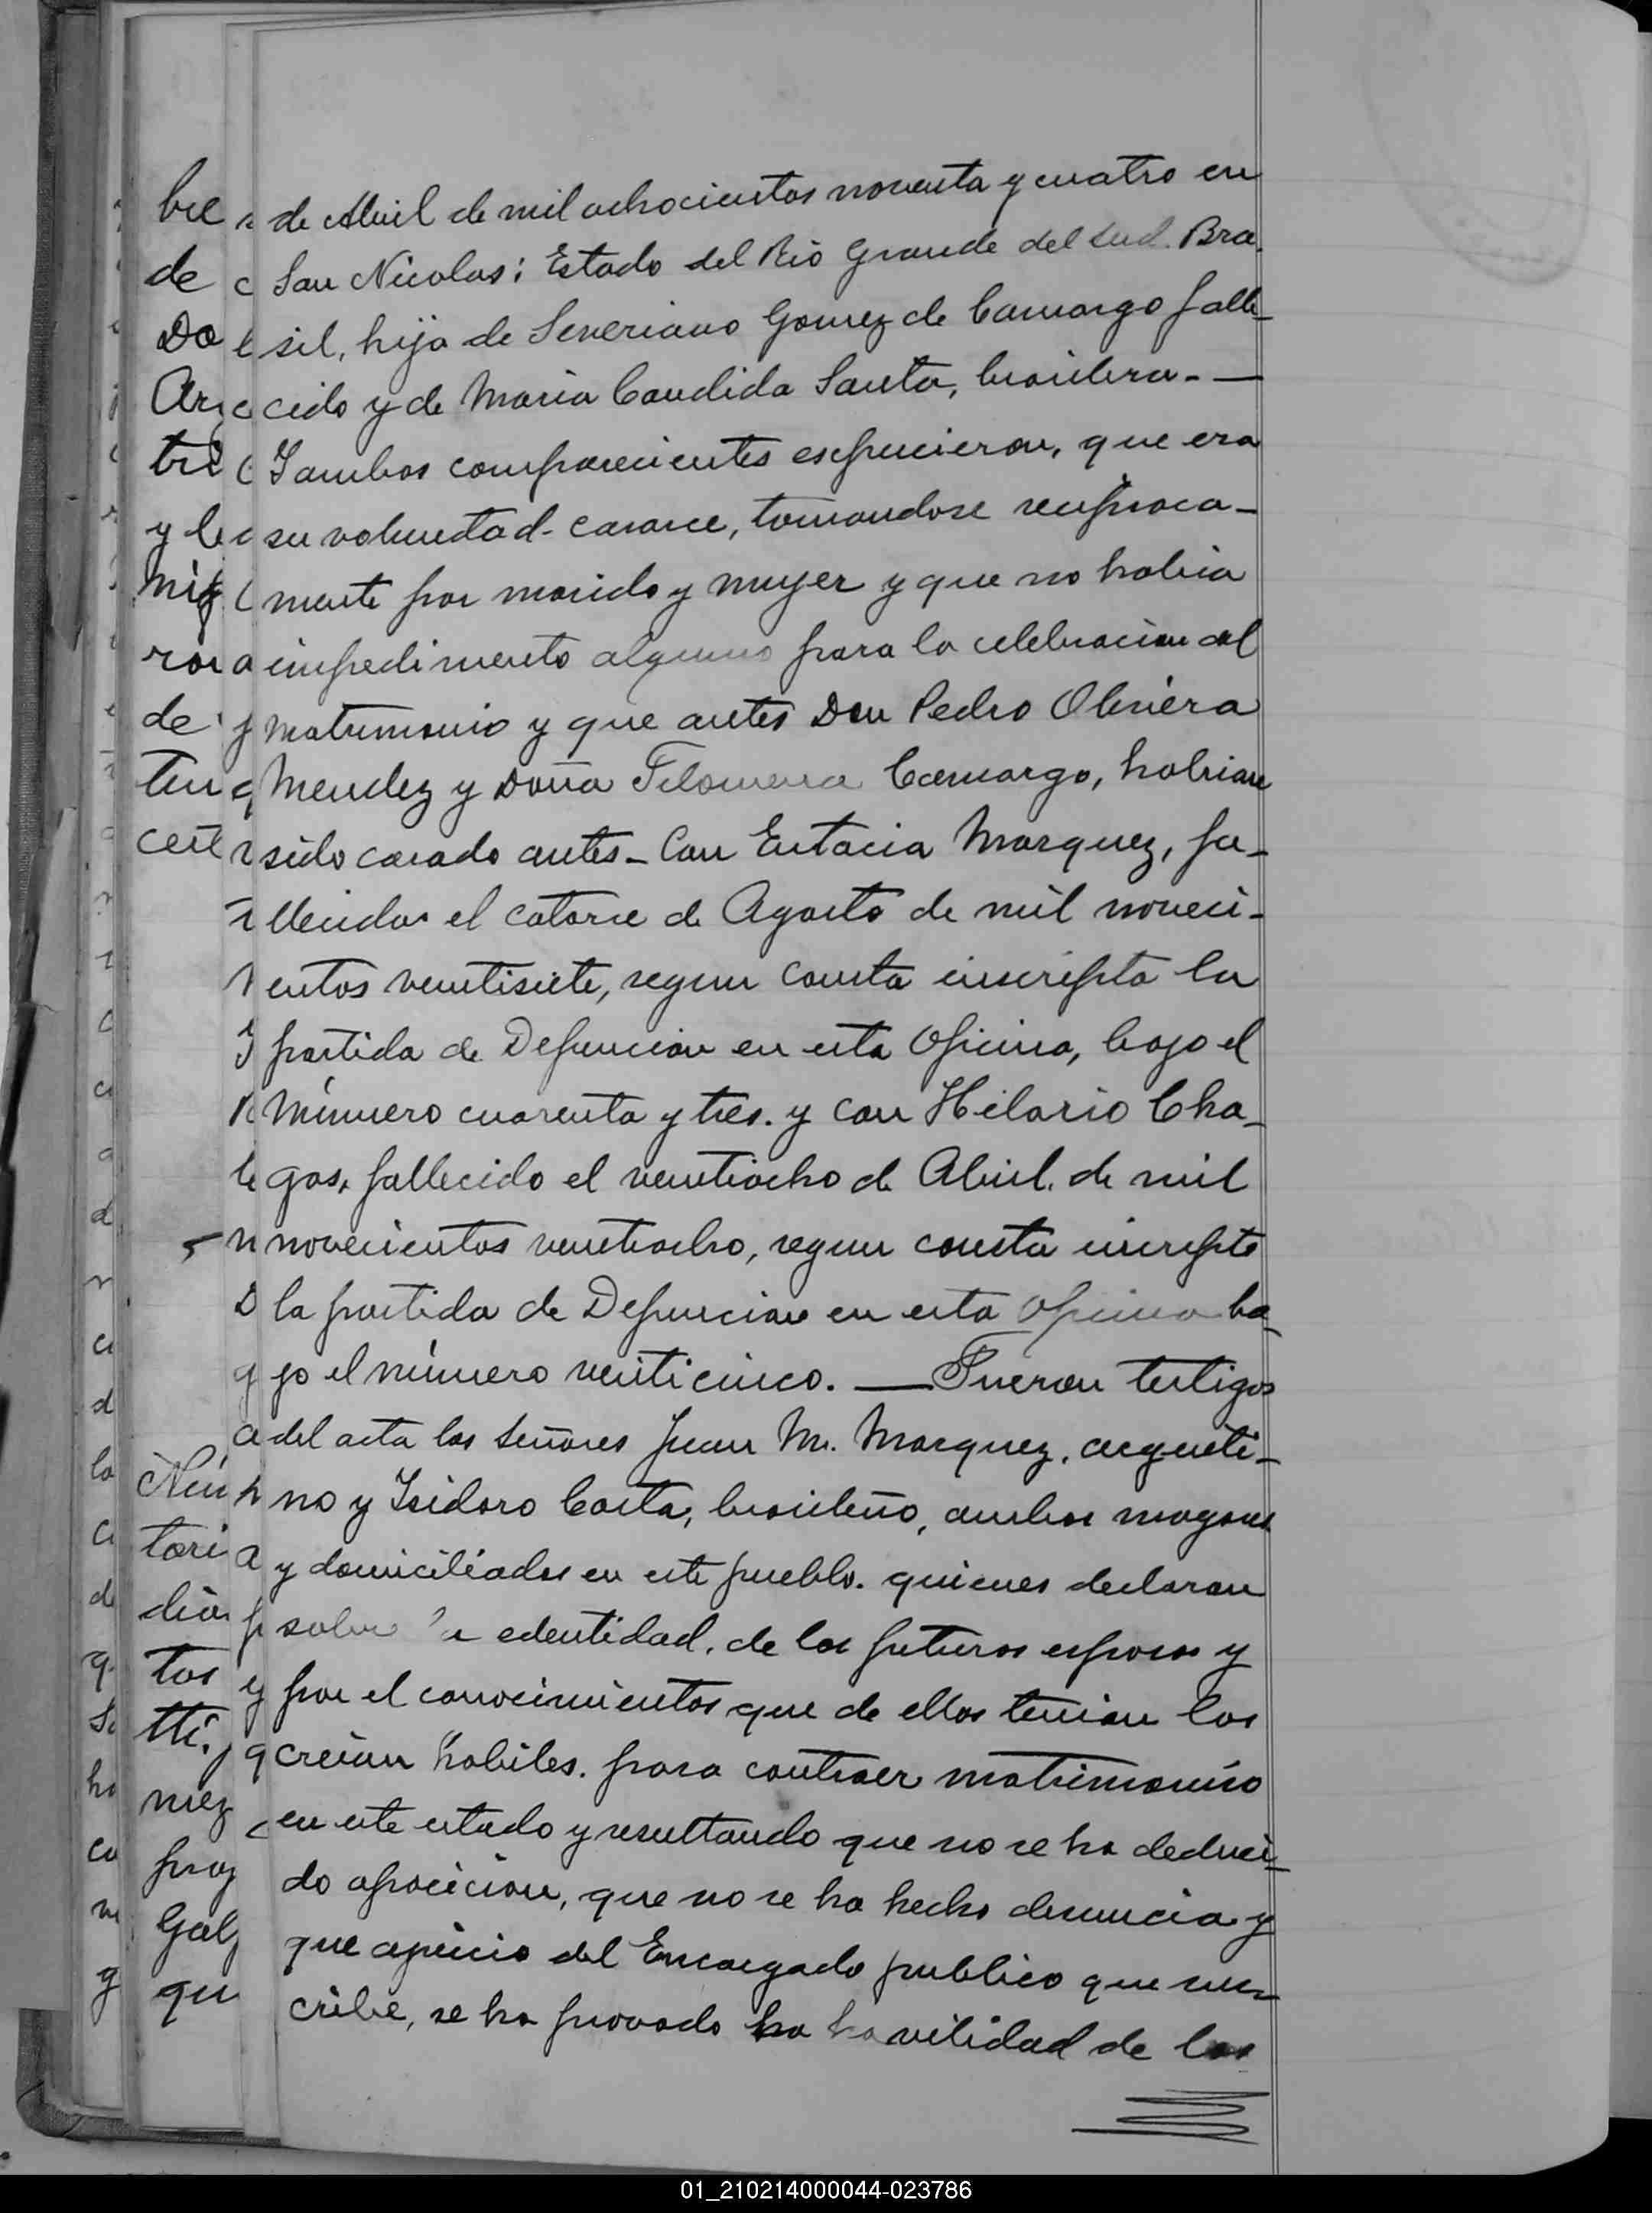 de Abril de mil ochocientos noventa y cuatro en
San Nicolas; Estado del Rio Grande del Sud. Bra-
sil, hija de Severiano Gomez de Camargo falle-
cido y de Maria Candida Santa, brasilera. —
Y ambos comparecientes espucieron, que era
su voluntad casarce, tomandose reciproca-
mente por marido y mujer y que no habia
impedimento alguno para la celebracion del
matrimonio y que antes Don Pedro Olivera
Mendez y Doña Filomena Camargo, habian
sido casado antes - Con Eustacia Marquez, fa-
llecida el catorce de Agosto de mil noveci-
entos ventisiete, segun consta inscripta la
partida de Defuncion en esta Oficina, bajo el
Número cuarenta y tres. y con Hilario Cha-
gas, fallecido el ventiocho de Abril. de mil
novecientos ventiocho, segun consta inscripta
la partida de Defuncion en esta Oficina ba-
jo el número venticinco. — Fueron testigos
del acta los Señores Juan M. Marquez, argenti-
no y Isidoro Costa, brasileño, ambos mayores
y domiciliados en este pueblo. quienes declaran
sobre la edentidad. de los futuros esposos y
por el conocimientos que de ellos tenian los
creian habiles. para contraer matrimonio
en este estado y resultando que no se ha deduci-
do oposicion, que no se ha hecho denuncia y
que ajuicio del Encargado publico que sus-
cribe, se ha provado la havilidad de los
01_210214000044-023786